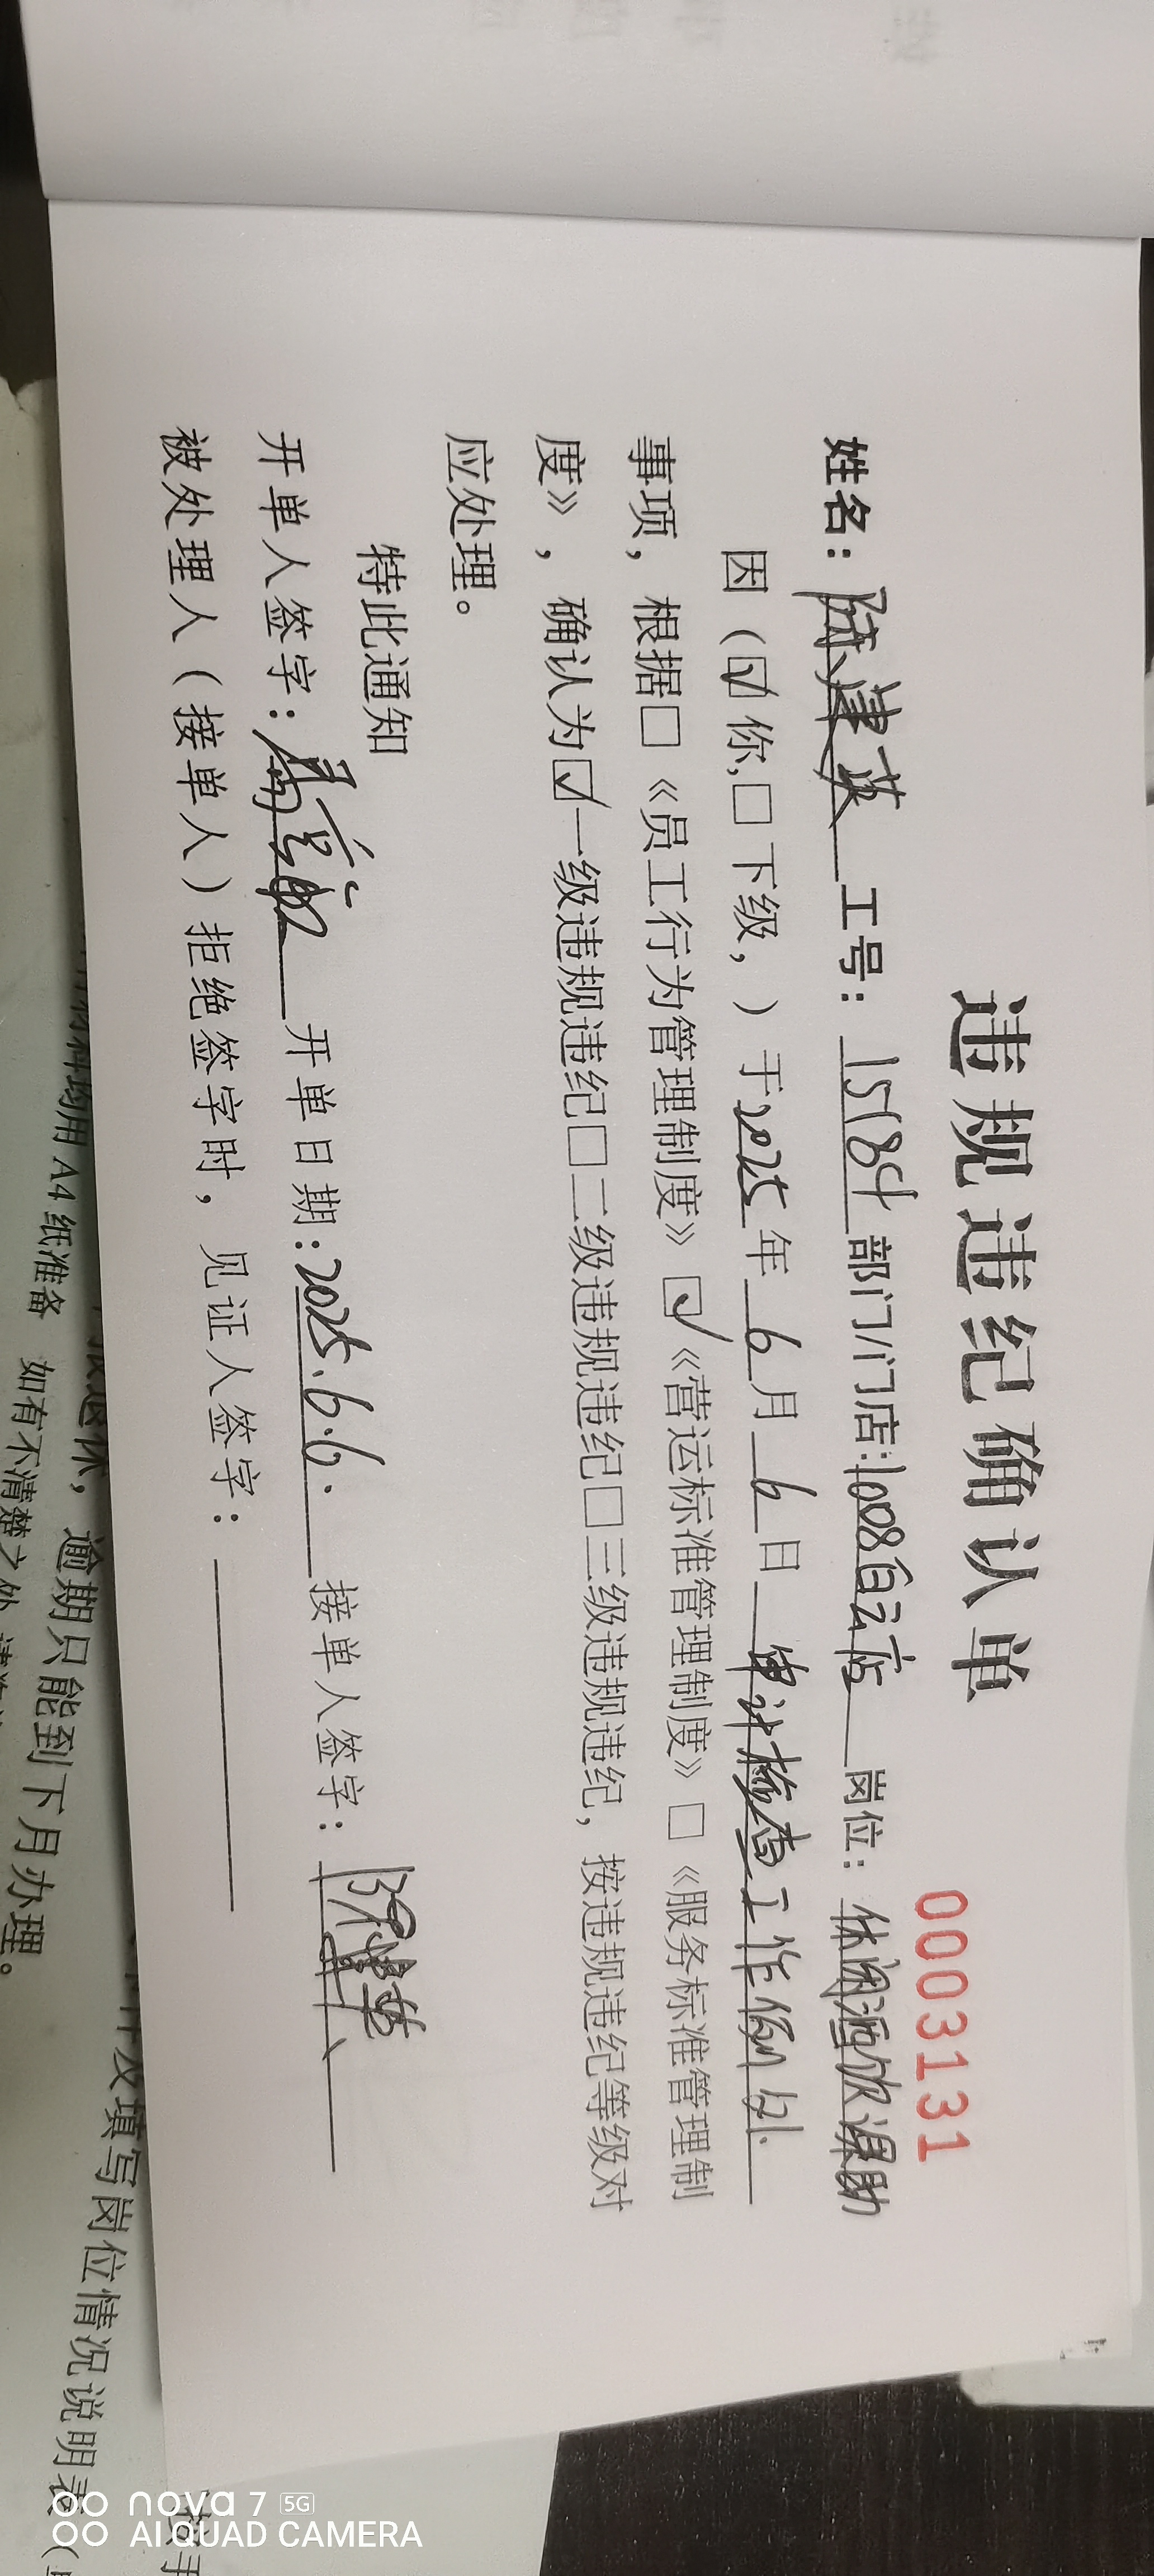 违规违纪确认单
0003131
姓名：陈建英 工号：15184 部门/门店：1008白云店 岗位：休闲酒饮课助
因（☑你,□下级，）于2025年6月6日 审计检查工作例外
事项，根据□《员工行为管理制度》☑《营运标准管理制度》□《服务标准管理制
度》，确认为☑一级违规违纪□二级违规违纪□三级违规违纪，按违规违纪等级对
应处理。
特此通知
开单人签字： 开单日期：2025.6.6. 接单人签字：陈建英
被处理人（接单人）拒绝签字时，见证人签字：
材料均用 A4 纸准备
退休，逾期只能到下月办理。
如有不清楚之处
件及填写岗位情况说明表（
nova 7 5G
AI QUAD CAMERA